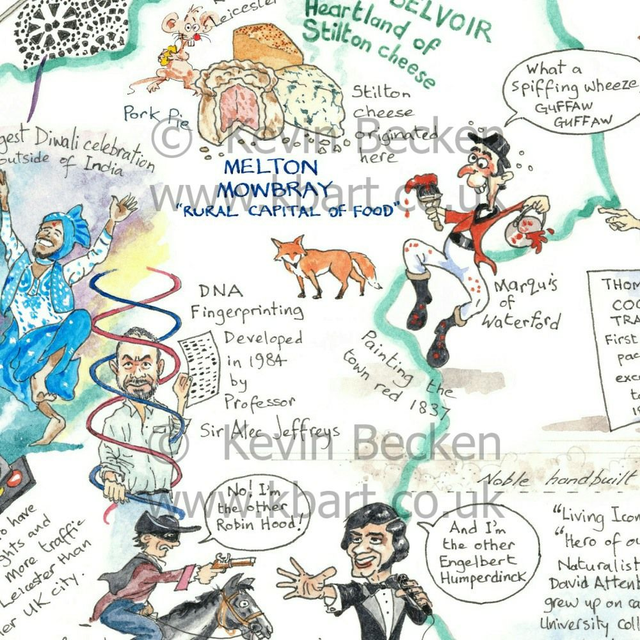 Leicester
BELVOIR
Heartland of
Stilton cheese
Pork Pie
Stilton
cheese
originated
here
What a
spiffing wheeze
GUFFAW
GUFFAW
gest Diwali celebration
outside of India
MELTON
MOWBRAY
"RURAL CAPITAL OF FOOD"
DNA
Fingerprinting
Developed
in 1984
by
Professor
Sir Alec Jeffreys
Marquis
of
Waterford
Painting the
town red 1837
THOM
CO
TRA
First
pac
exc
to
Noble handbuilt
No! I'm
the other
Robin Hood!
And I'm
the other
Engelbert
Humperdinck
"Living Icon
"Hero of ou
Naturalist
David Atten
grew up on ca
University Coll
to have
ghts and
more traffic
Leicester than
er UK city.
© Kevin Becken
www.kbart.co.uk
© Kevin Becken
www.kbart.co.uk